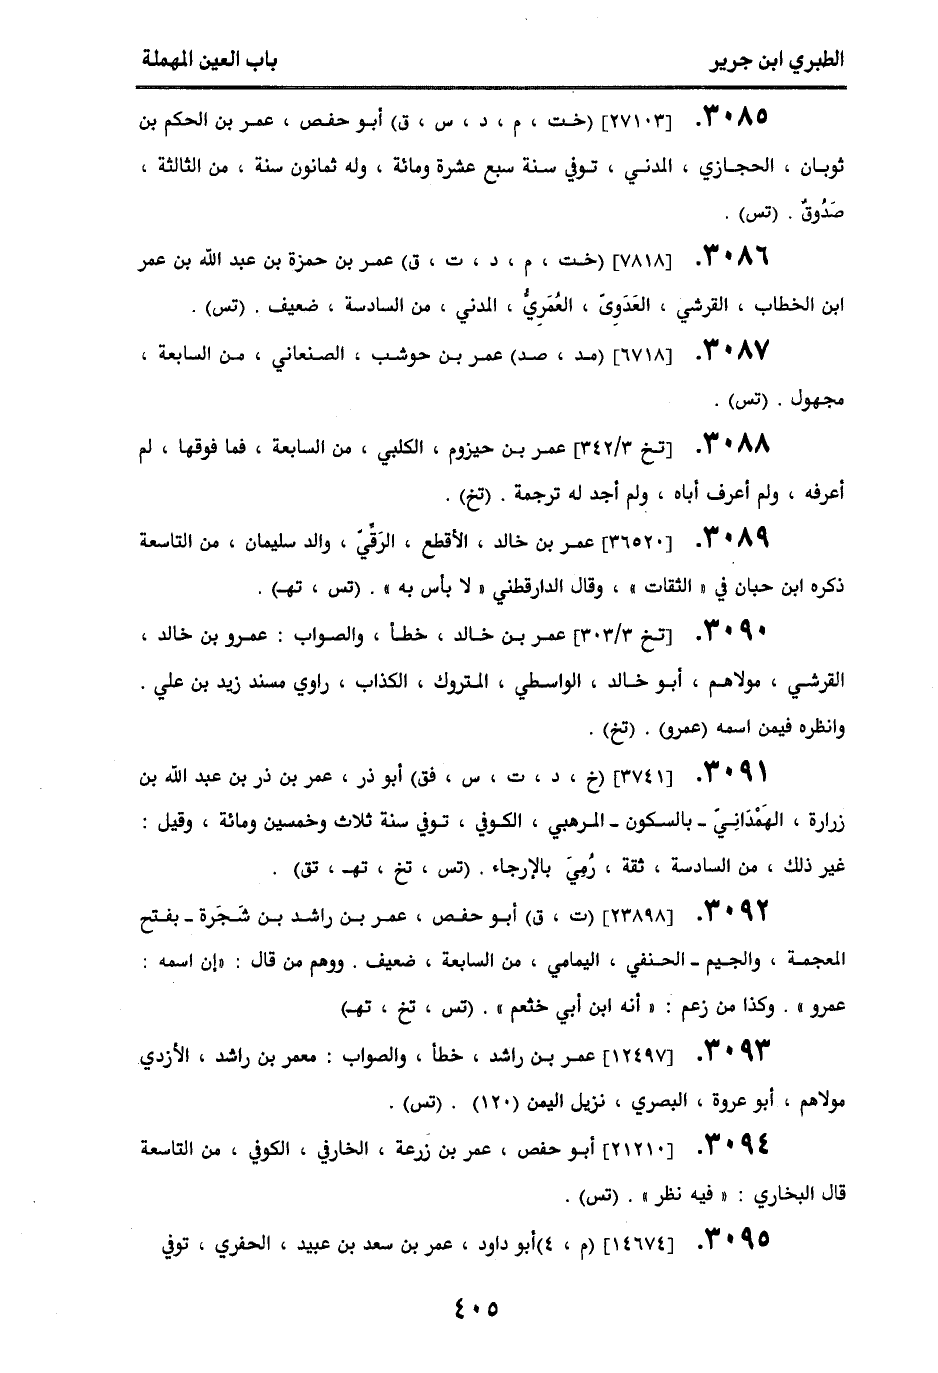 الطبري ابن جرير
باب العين المهملة
٣٠٨٥. [٢٧١٠٣] (خت ، م ، د ، س ، ق) أبو حفص ، عمر بن الحكم بن
ثوبان ، الحجازي ، المدني ، توفي سنة سبع عشرة ومائة ، وله ثمانون سنة ، من الثالثة ،
صَدُوقٌ . (تس) .
٣٠٨٦. [٧٨١٨] (خت ، م ، د ، ت ، ق) عمر بن حمزة بن عبد الله بن عمر
ابن الخطاب ، القرشي ، العَدَوِيّ ، العُمَرِيُّ ، المدني ، من السادسة ، ضعيف . (تس) .
٣٠٨٧. [٦٧١٨] (مد ، صد) عمر بن حوشب ، الصنعاني ، من السابعة ،
مجهول . (تس) .
٣٠٨٨. [تخ ٣٤٢/٣] عمر بن حيزوم ، الكلبي ، من السابعة ، فما فوقها ، لم
أعرفه ، ولم أعرف أباه ، ولم أجد له ترجمة . (تخ) .
٣٠٨٩. [٣٦٥٢٠] عمر بن خالد ، الأقطع ، الرَقِّيّ ، والد سليمان ، من التاسعة
ذكره ابن حبان في « الثقات » ، وقال الدارقطني « لا بأس به » . (تس ، تهـ) .
٣٠٩٠. [تخ ٣٠٣/٣] عمر بن خالد ، خطأ ، والصواب : عمرو بن خالد ،
القرشي ، مولاهم ، أبو خالد ، الواسطي ، المتروك ، الكذاب ، راوي مسند زيد بن علي .
وانظره فيمن اسمه (عمرو) . (تخ) .
٣٠٩١. [٣٧٤١] (خ ، د ، ت ، س ، فق) أبو ذر ، عمر بن ذر بن عبد الله بن
زرارة ، الهَمْدَانِيّ ـ بالسكون ـ المرهبي ، الكوفي ، توفي سنة ثلاث وخمسين ومائة ، وقيل :
غير ذلك ، من السادسة ، ثقة ، رُمِيَ بالإرجاء . (تس ، تخ ، تهـ ، تق) .
٣٠٩٢. [٢٣٨٩٨] (ت ، ق) أبو حفص ، عمر بن راشد بن شَجَرة ـ بفتح
المعجمة ، والجيم ـ الحنفي ، اليمامي ، من السابعة ، ضعيف . ووهم من قال : «إن اسمه :
عمرو » . وكذا من زعم : « أنه ابن أبي خثعم » . (تس ، تخ ، تهـ)
٣٠٩٣. [١٢٤٩٧] عمر بن راشد ، خطأ ، والصواب : معمر بن راشد ، الأزدي
مولاهم ، أبو عروة ، البصري ، نزيل اليمن (١٢٠) . (تس) .
٣٠٩٤. [٢١٢١٠] أبو حفص ، عمر بن زَرعة ، الخارفي ، الكوفي ، من التاسعة
قال البخاري : « فيه نظر » . (تس) .
٣٠٩٥. [١٤٦٧٤] (م ، ٤)أبو داود ، عمر بن سعد بن عبيد ، الحفري ، توفي
٤٠٥